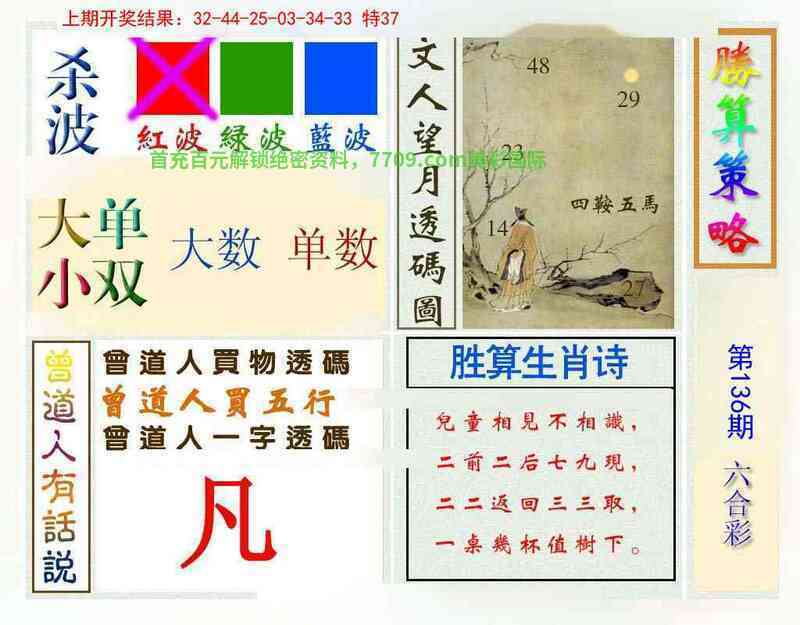 上期开奖结果：32-44-25-03-34-33 特37
杀波
紅波 緑波 藍波
首充百元解锁绝密资料，7709.com
国际
大单
小双
大数 单数
文人望月透碼圖
48
29
23
四鞍五馬
14
27
勝算策略
曾道人有話説
曾道人買物透碼
曾道人買五行
曾道人一字透碼
凡
胜算生肖诗
兒童相見不相識，
二前二后七九現，
二二返回三三取，
一桌幾杯值樹下。
第136期
六合彩